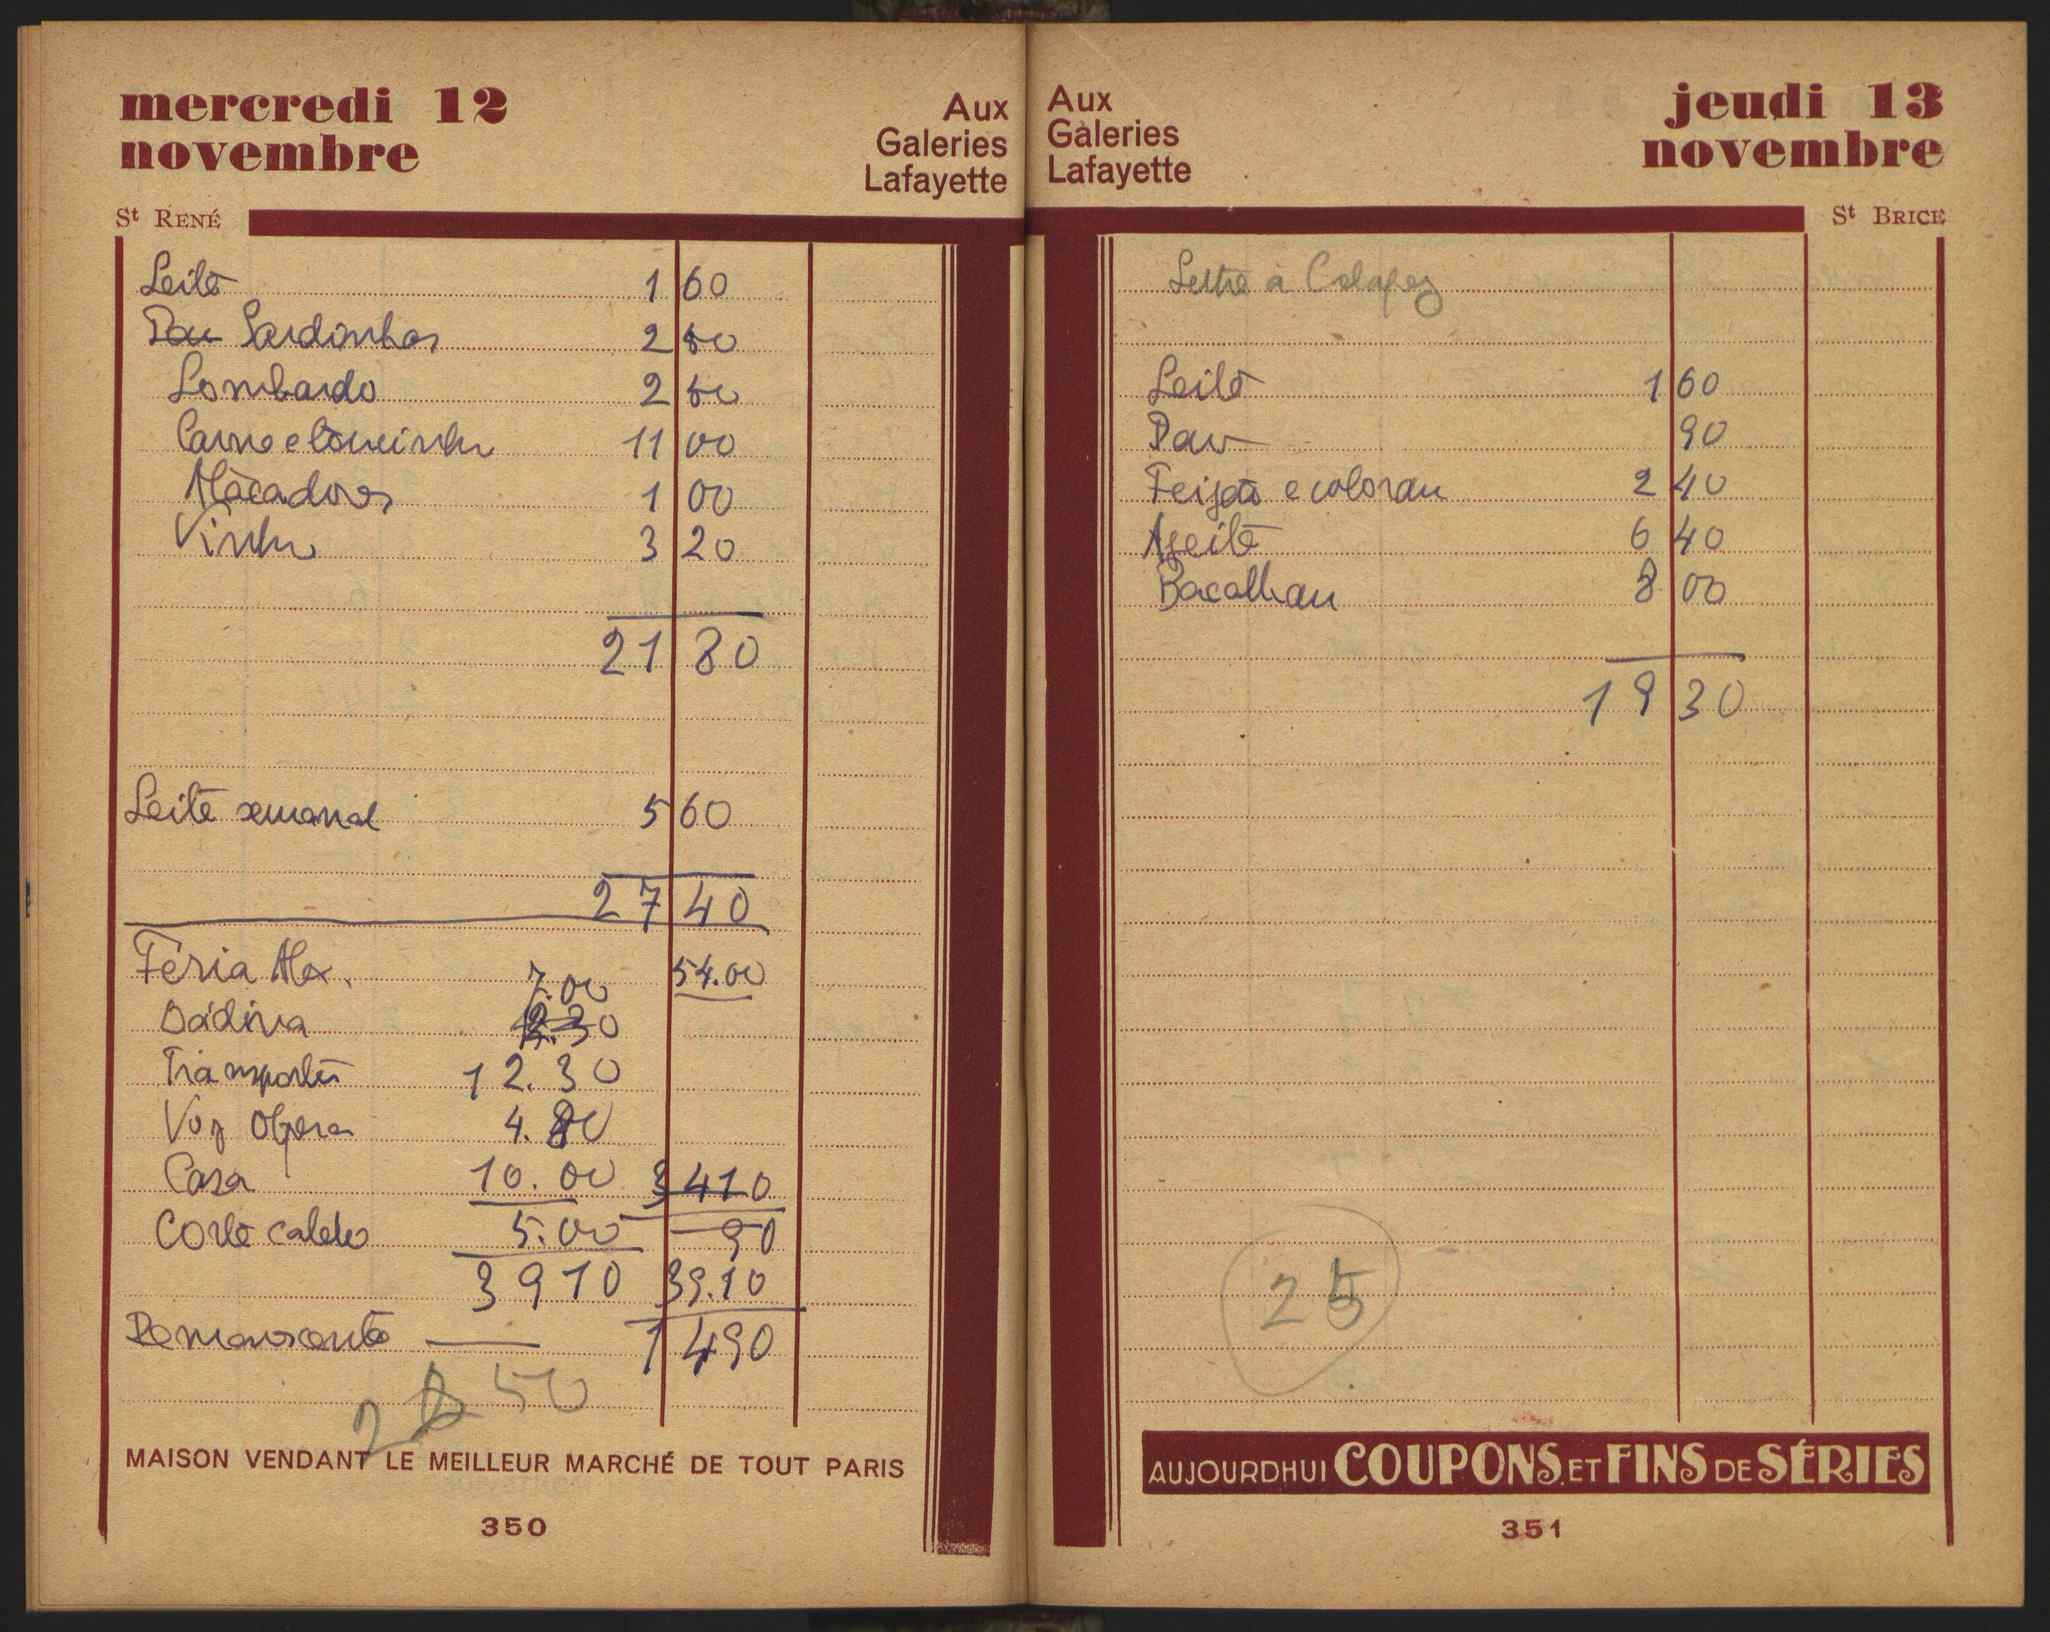 mercredi 12
novembre
Aux
Galeries
Lafayette
St RENÉ
Leite 1 60
Pau Sardinhas 2 50
Lombardo 2 50
Carne e toucinhu 11 00
Macadores 1 00
Vinhu 3 20
21 80
Leite semanal 5 60
27 40
Féria Alex. 54.00
7.00
Dádiva
Transportes 12.30
Voz Opera 4.80
Casa 10.00 3410
Corte cabelo 5.00 90
3910 39.10
Remanescente 1490
50
MAISON VENDANT LE MEILLEUR MARCHÉ DE TOUT PARIS
350
Aux
Galeries
Lafayette
jeudi 13
novembre
St BRICE
Lettre à
Leite 1 60
Pau 90
Feijão e colorau 2 40
Azeite 6 40
Bacalhau 8 00
19 30
25
AUJOURDHUI COUPONS ET FINS DE SÉRIES
351